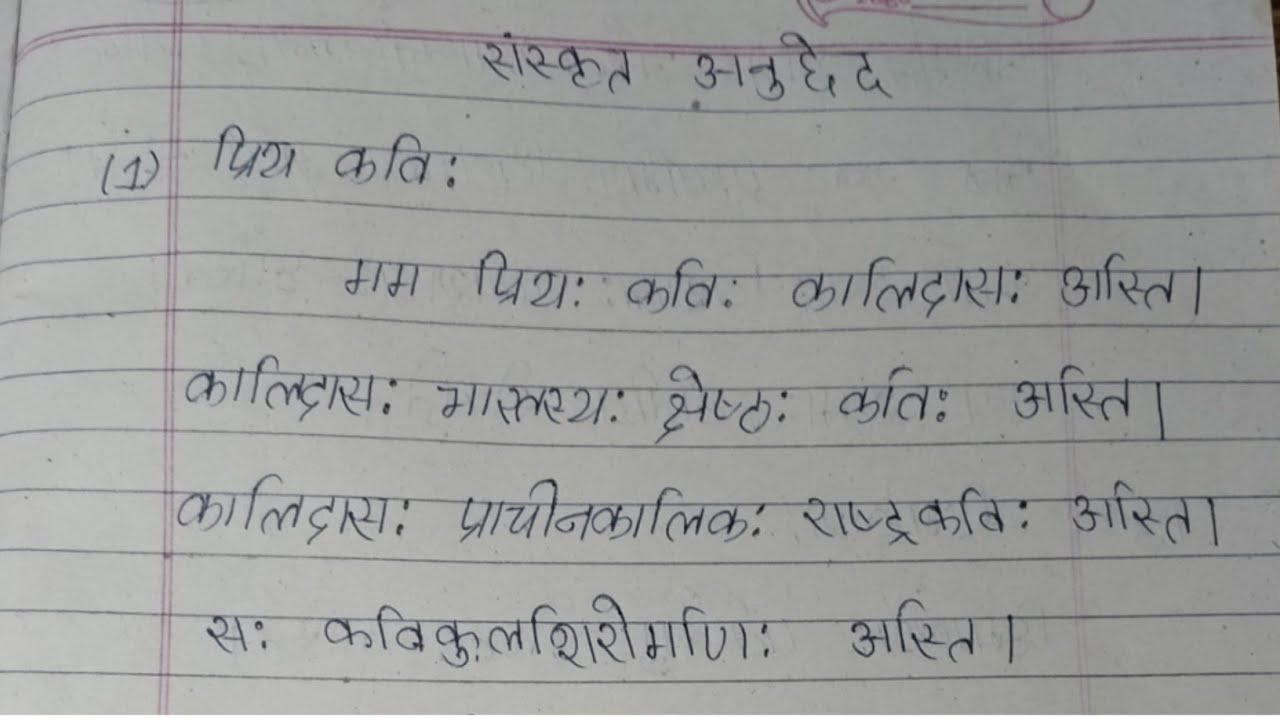 संस्कृत अनुछेद
(1) प्रिय कवि:
मम प्रिय: कवि: कालिदास: अस्ति।
कालिदास: भारतस्य: श्रेष्ठ: कवि: अस्ति।
कालिदास: प्राचीनकालिक: राष्ट्रकवि: अस्ति।
स: कविकुलशिरोमणि: अस्ति।